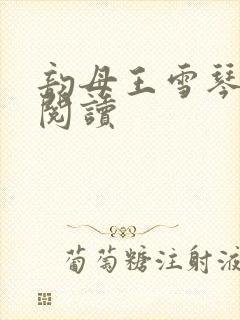 韵母王雪琴
閱讀
葡萄糖注射液